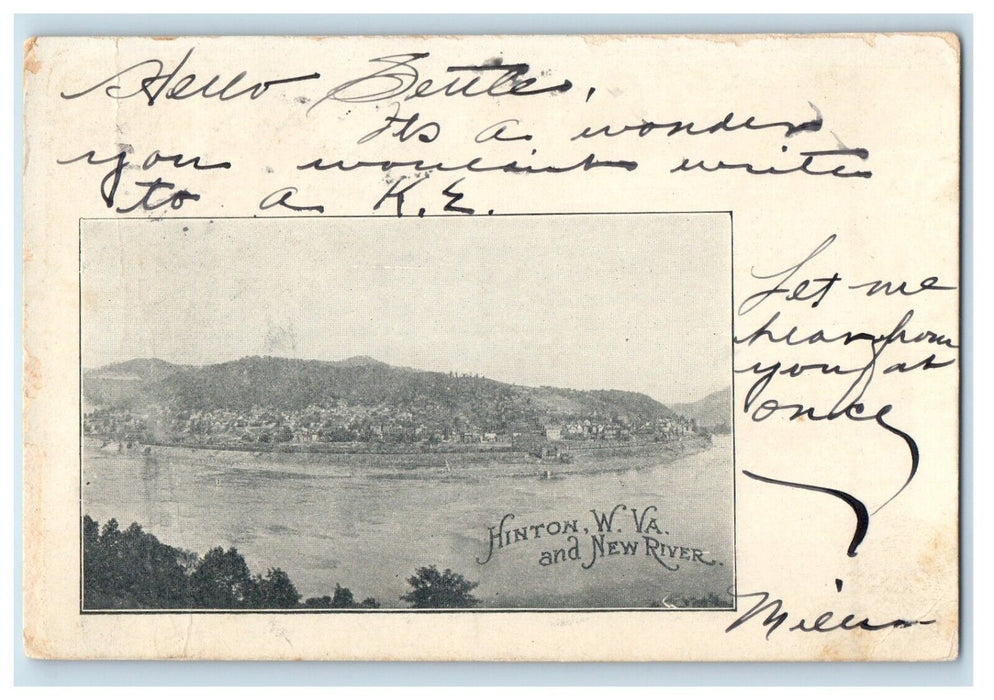 Hello Settle,
Its a wonder
you wouldn't write
to a K.E.
Let me
hear from
you at
once
HINTON, W. VA.
and NEW RIVER.